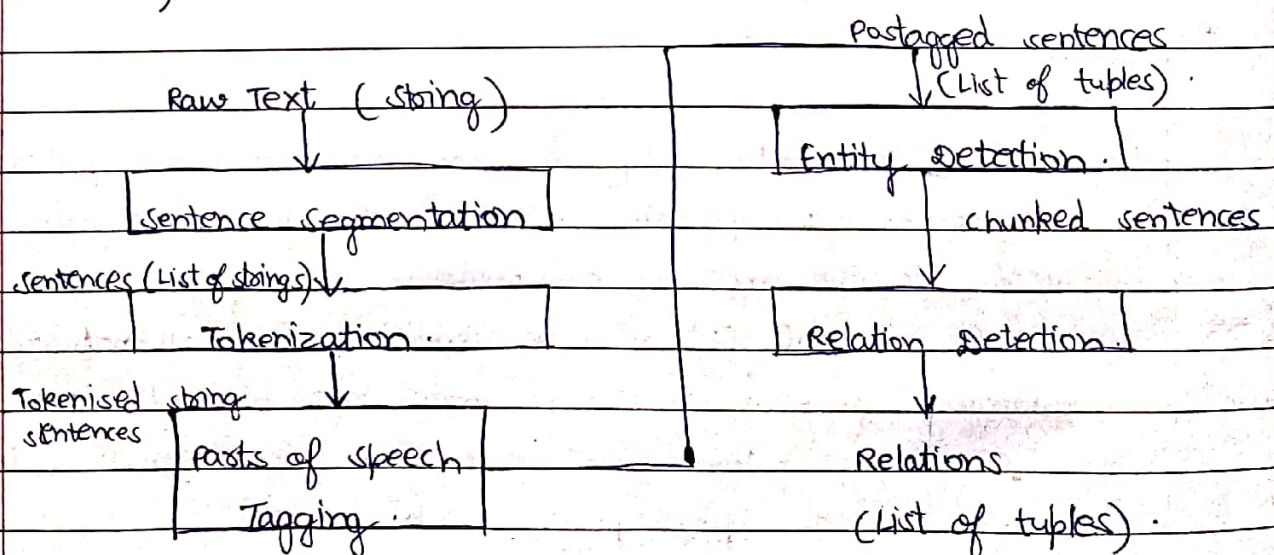 Raw Text (string)
Sentence segmentation
sentences (List of strings)
Tokenization.
Tokenised string
sentences
Parts of speech
Tagging.
Postagged sentences
(List of tuples).
Entity Detection.
chunked sentences
Relation Detection.
Relations
(List of tuples).